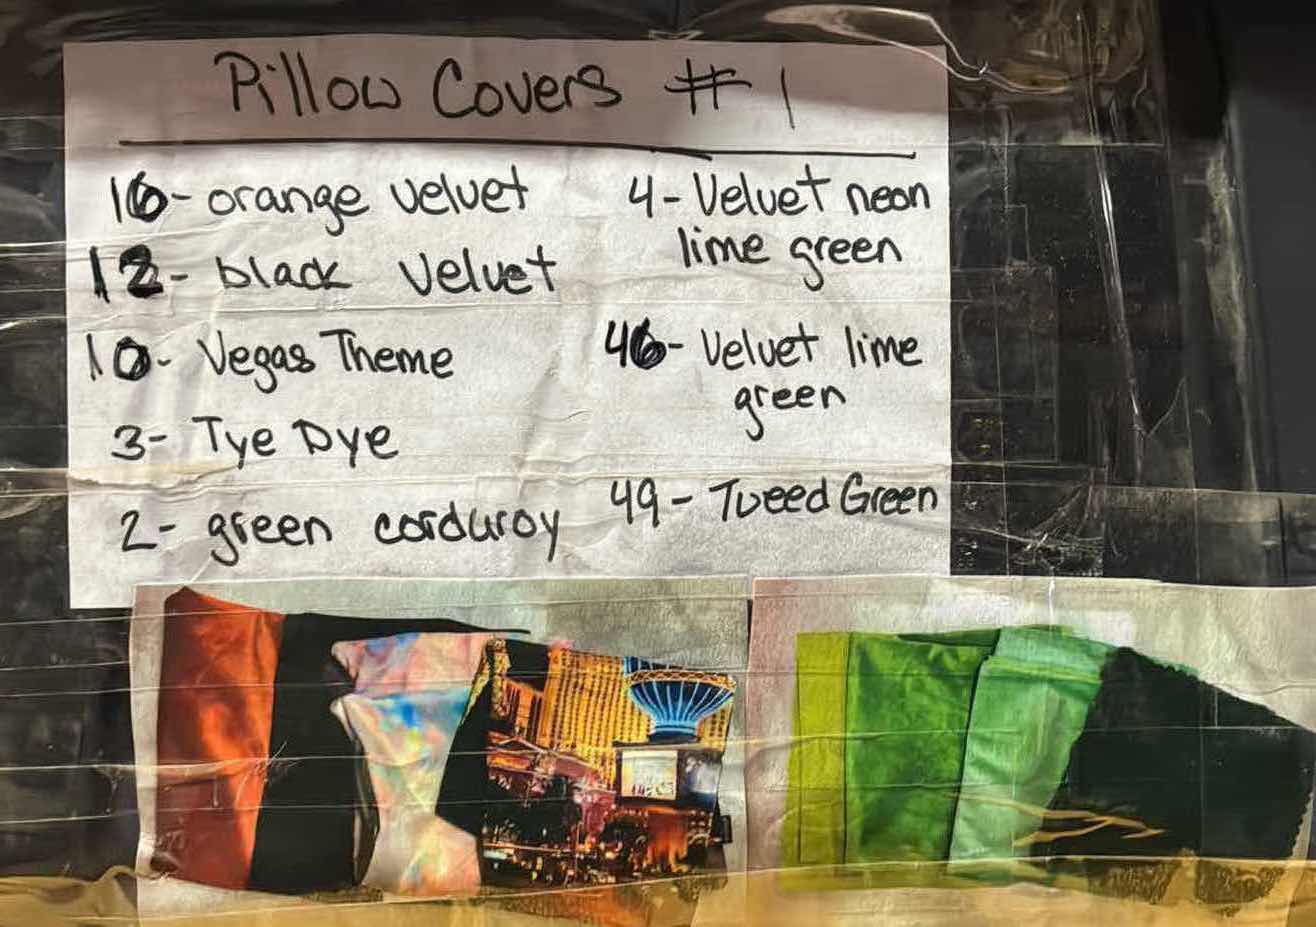 Pillow Covers #1
16- orange velvet
12- black velvet
10- Vegas Theme
3- Tye Dye
2- green corduroy
4- Velvet neon
lime green
46- Velvet lime
green
49- Tweed Green